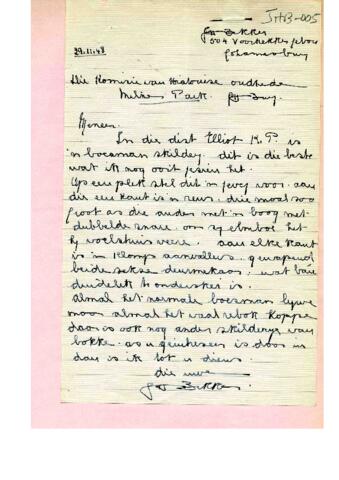 JHB-005
Bekker
504 Voortrekker gebou
Johannesburg
29.11.48
Die Komisie van Historiese oudhede
Melrose Park. JHBurg
Meneer.
In die dist Elliot K.P. is
'n boesman skildery. dit is die beste
wat ik nog ooit gesien het.
Op een plek stel dit 'n geveg voor. aan
die een kant is 'n reus. drie maal soo
groot as die ander met 'n boog met
dubbelde snare. om sy elmboe het
hy voelstruis veere. aan elke kant
is 'n klomp aanvallers, gewapend
beide sekse deurmekaar, wat baie
duidelik te onderskei is.
almal het normale boesman lywe
maar almal het vaal rebok koppe
daar is ook nog ander skilderye van
bokke. as u geintreseer is daar in
dan is ik tot u diens.
die uwe
Bekker